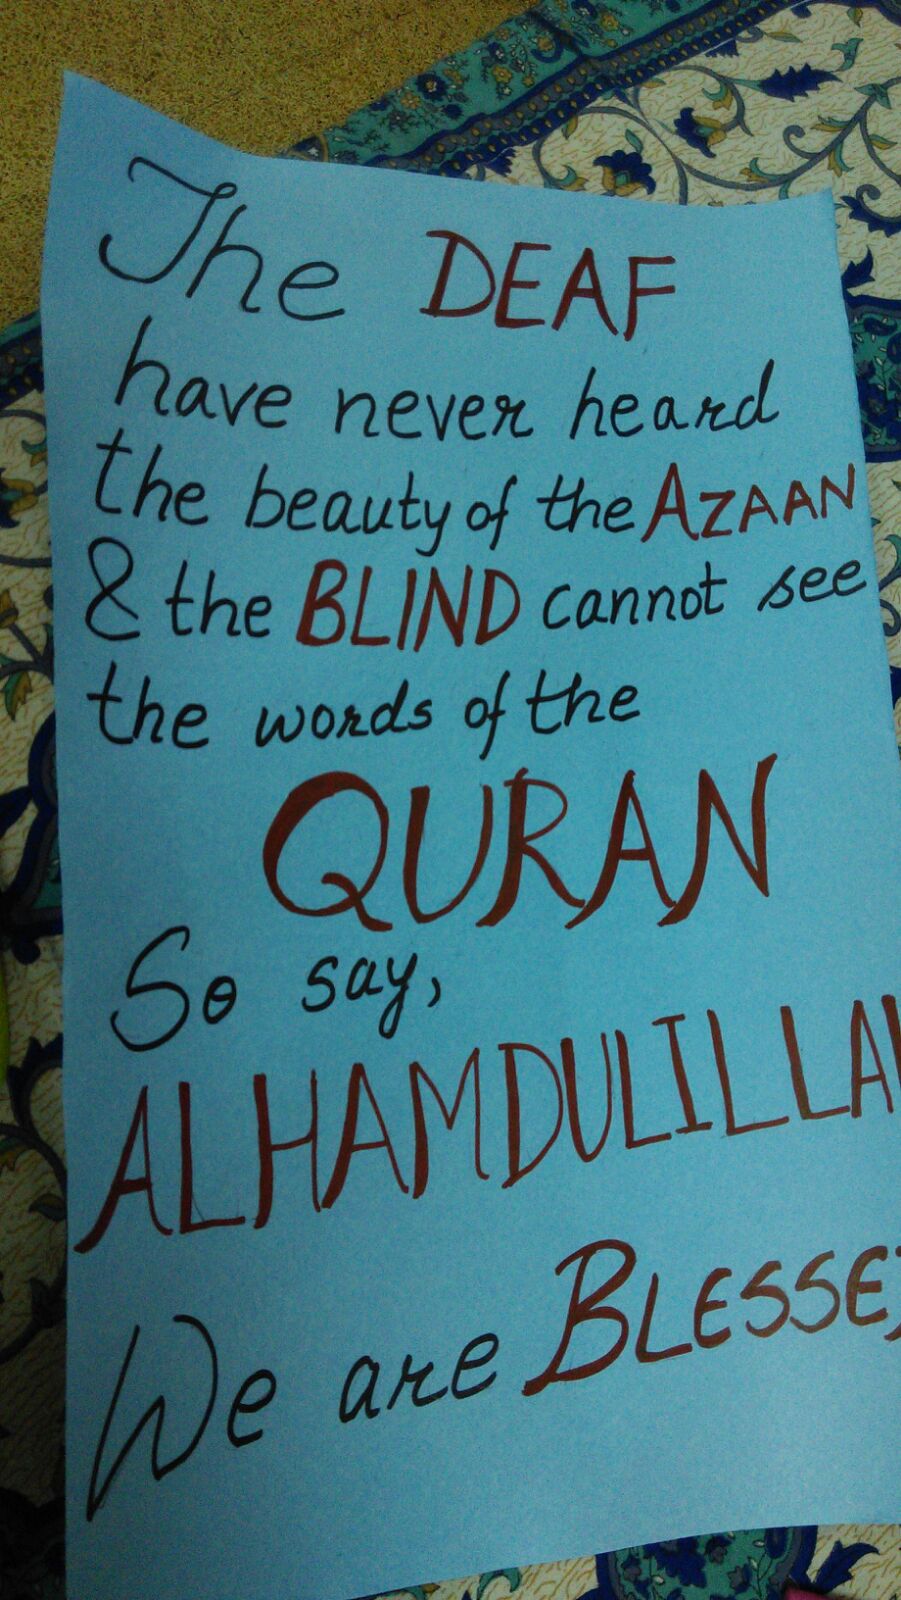 The DEAF
have never heard
the beauty of the AZAAN
& the BLIND cannot see
the words of the
QURAN
So say,
ALHAMDULILLAH
We are BLESSED